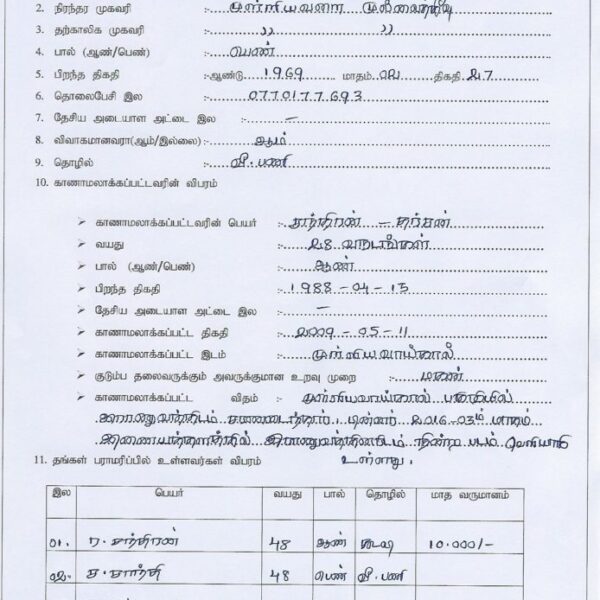 2. நிரந்தர முகவரி :- முள்ளியவளை முல்லைத்தீவு
3. தற்காலிக முகவரி :- ,, ,,
4. பால் (ஆண்/பெண்) :- பெண்
5. பிறந்த திகதி :-ஆண்டு 1969 மாதம் 02 திகதி 27
6. தொலைபேசி இல :- 0770177693
7. தேசிய அடையாள அட்டை இல :- –
8. விவாகமானவரா(ஆம்/இல்லை) :- ஆம்
9. தொழில் :- வீ.பணி
10. காணாமலாக்கப்பட்டவரின் விபரம்
➢ காணாமலாக்கப்பட்டவரின் பெயர் :-
➢ வயது :- 28 வருடங்கள்
➢ பால் (ஆண்/பெண்) :- ஆண்
➢ பிறந்த திகதி :- 1988-04-13
➢ தேசிய அடையாள அட்டை இல :- –
➢ காணாமலாக்கப்பட்ட திகதி :- 2009-05-11
➢ காணாமலாக்கப்பட்ட இடம் :- முள்ளியவாய்கால்
➢ குடும்ப தலைவருக்கும் அவருக்குமான உறவு முறை :- மகன்
➢ காணாமலாக்கப்பட்ட விதம் :- முள்ளியவாய்கால் பகுதியில்
இராணுவத்திடம் சரணடைந்தார். பின்னர் 2016-03ம் மாதம்
இணையத்தளத்தில் இராணுவத்தினரிடம் நின்ற படம் வெளியாகி
11. தங்கள் பராமரிப்பில் உள்ளவர்கள் விபரம் உள்ளது.
இல பெயர் வயது பால் தொழில் மாத வருமானம்
01. 48 ஆண் 10.000/-
02. 48 பெண் வீ.பணி